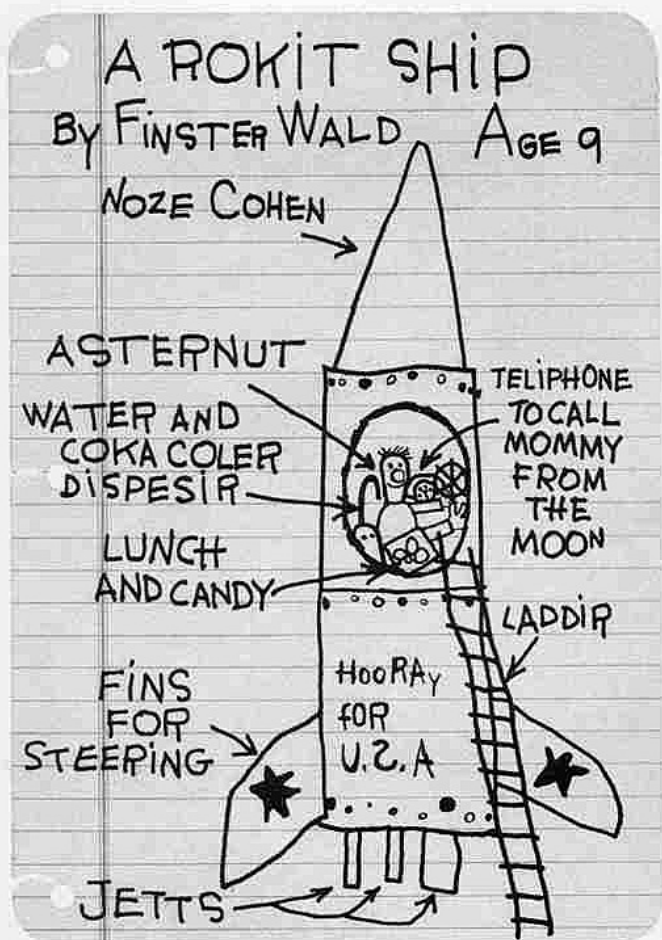 A ROKIT SHIP
BY FINSTER WALD AGE 9
NOZE COHEN
ASTERNUT
WATER AND
COKA COLER
DISPESIR
LUNCH
AND CANDY
TELIPHONE
TO CALL
MOMMY
FROM
THE
MOON
LADDIR
HOORAY
FOR
U.S.A
FINS
FOR
STEERING
JETTS